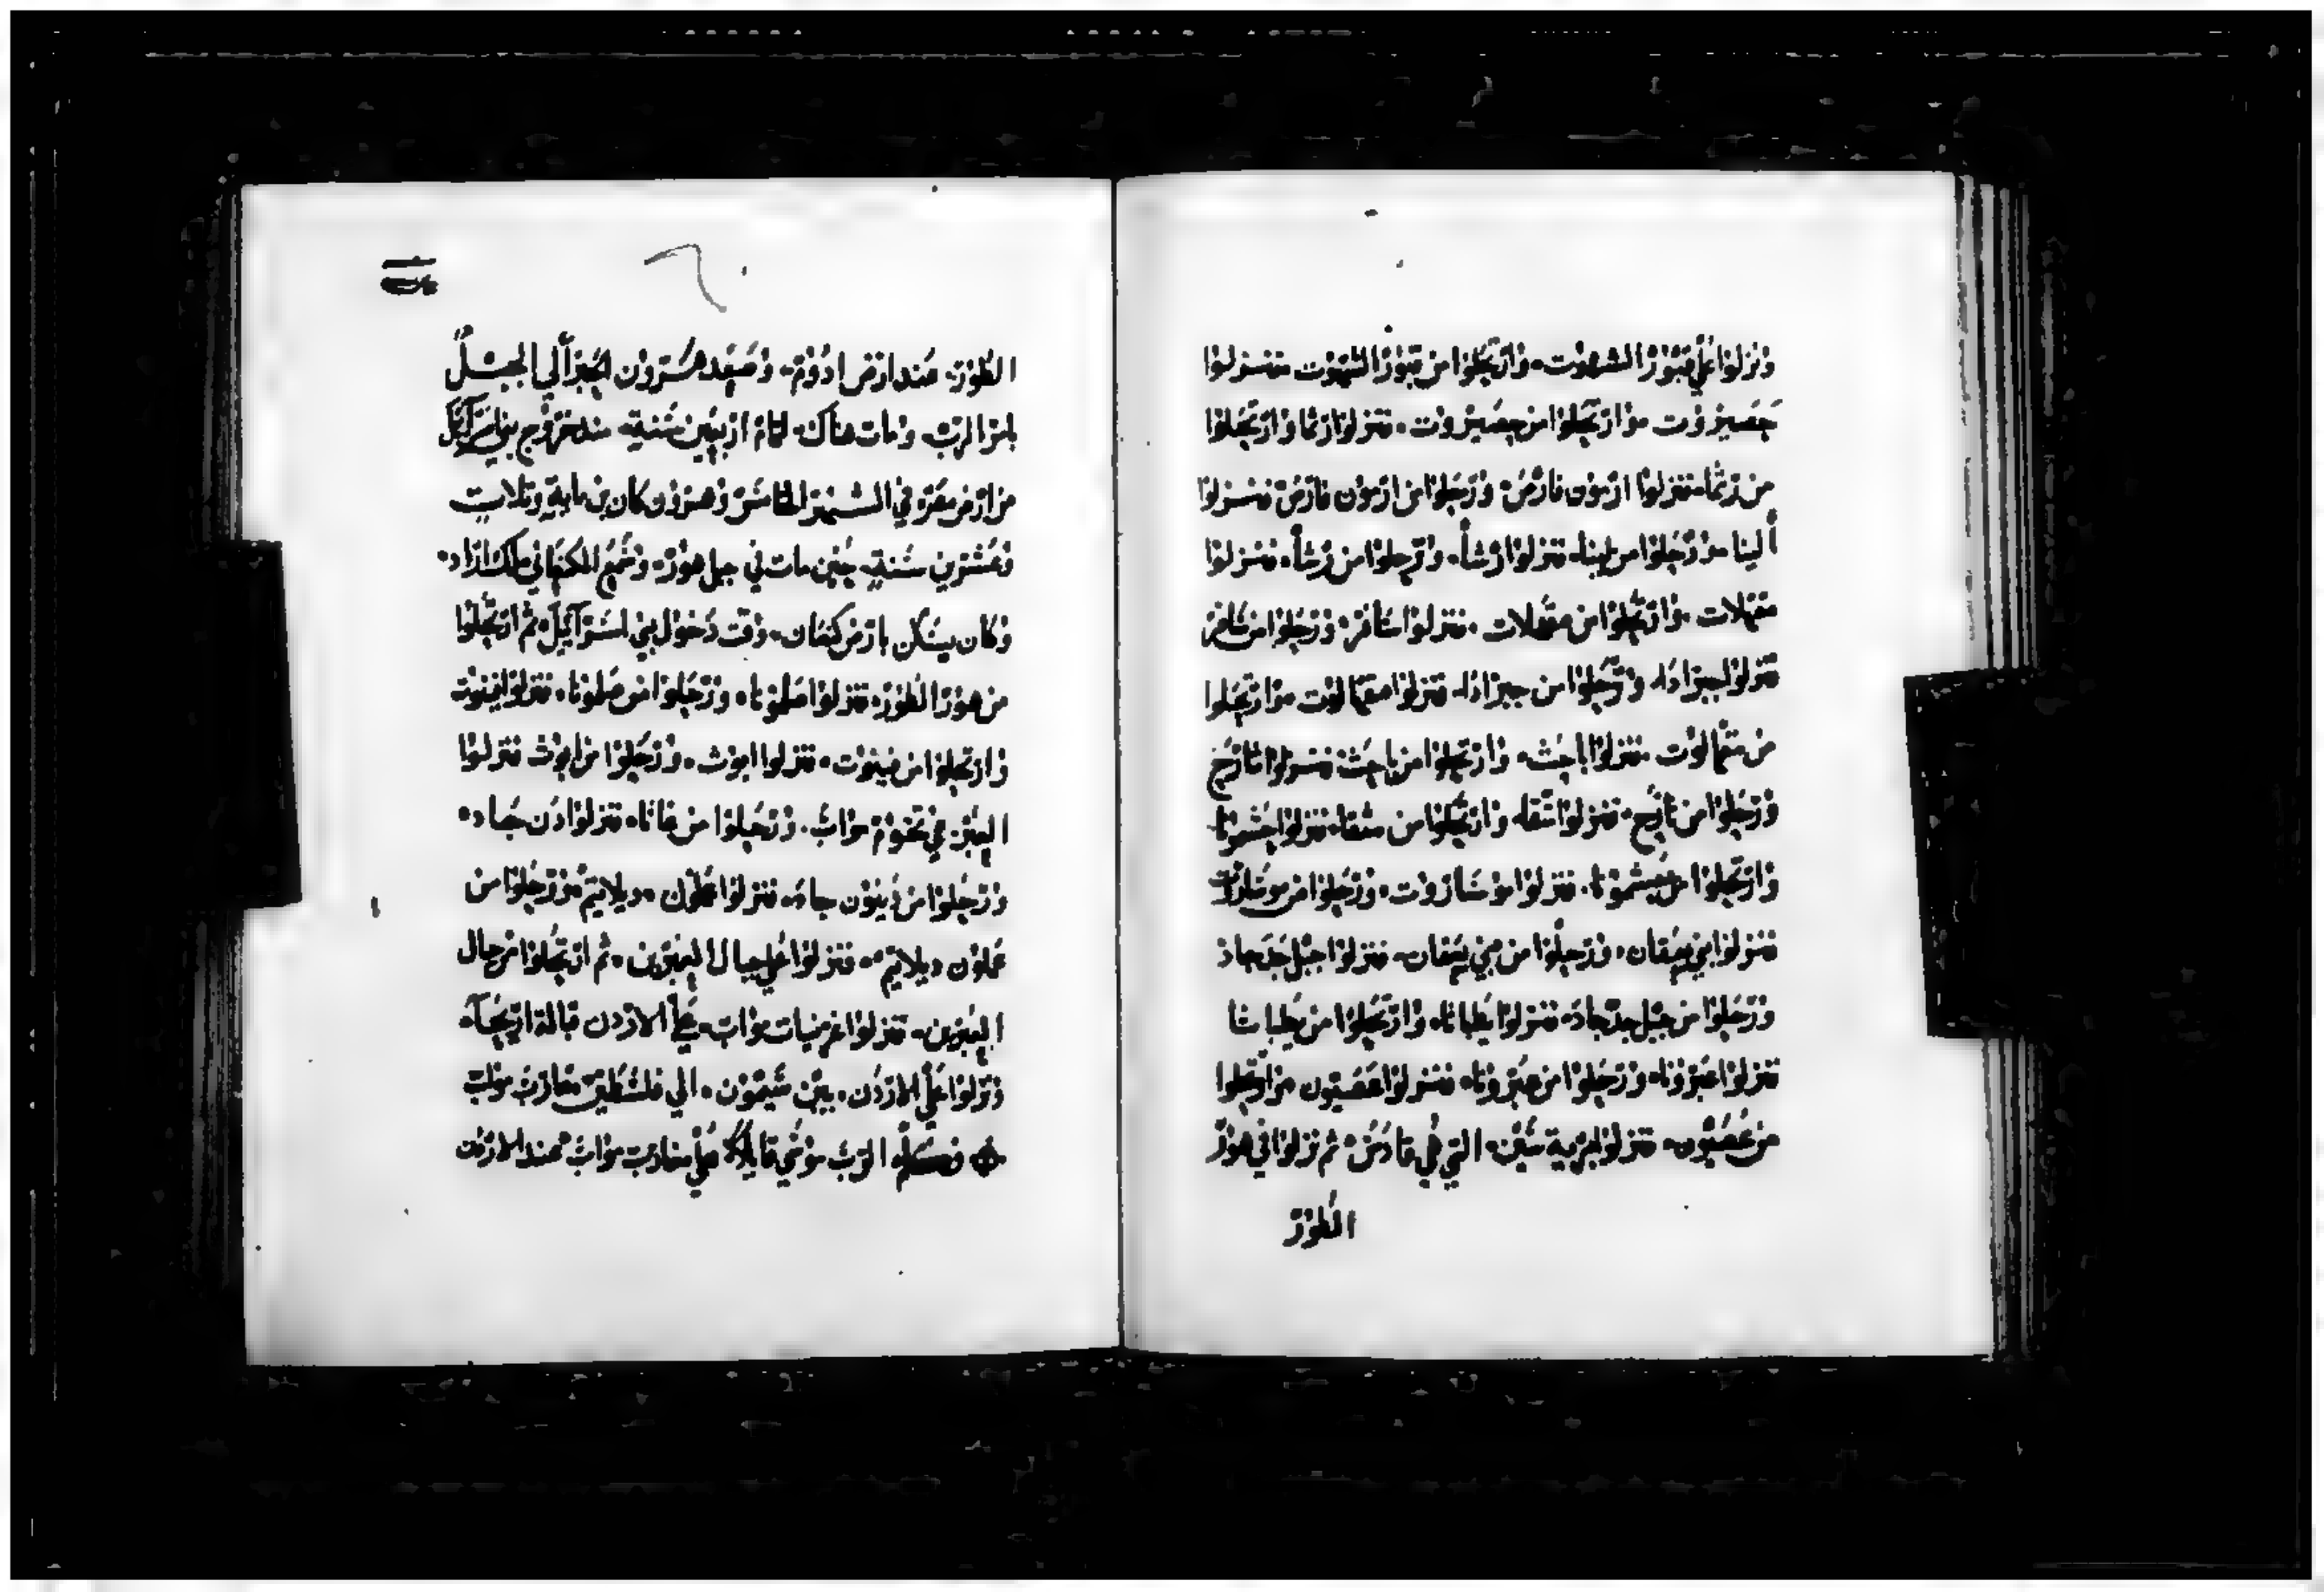 ونزلوا علي قبور الشهوت وارتحلوا من قبور الشهوت فنزلوا
حصيروت وارتحلوا من حصيروت فنزلوا رثما وارتحلوا
من رثما فنزلوا ارمون فارص ورحلوا من ارمون فارص فنزلوا
البنا ورحلوا من لبنا فنزلوا رشا ورحلوا من رشا فنزلوا
مقهلات وارتحلوا من مقهلات فنزلوا شافر ورحلوا من شافر
فنزلوا جراده ورحلوا من جراده فنزلوا مقهالوت وارتحلوا
من مقهالوت فنزلوا باحث وارتحلوا من باحث فنزلوا تارح
ورحلوا من تارح فنزلوا متقا وارتحلوا من متقا فنزلوا حشمونا
وارتحلوا من حشمونا فنزلوا موساروت ورحلوا من موساروت
فنزلوا بني يعقان ورحلوا من بني يعقان فنزلوا جبل جدجاد
ورحلوا من جبل جدجاد فنزلوا يطباثا وارتحلوا من يطباثا
فنزلوا عبرونا ورحلوا من عبرونا فنزلوا عصيون وارتحلوا
من عصيون فنزلوا برية سين التي هي قادس ثم نزلوا في هور
الطور
الطور عند ارض ادوم وصعد هرون الحبر الي الجبل
بامر الرب ومات هناك لتمام اربعين سنة مند خروج بني اسرائيل
من ارض مصر في الشهر الخامس وهرون كان بن ماية وتلات
وعشرين سنة حين مات في جبل هور وسمع الكنعاني ملك اراد
وكان يسكن بارض كنعان وقت دخول بني اسرائيل ثم ارتحلوا
من هور الطور فنزلوا صلمونا ورحلوا من صلمونا فنزلوا فينوت
وارتحلوا من فينوت فنزلوا ابوث ورحلوا من ابوث فنزلوا
العبر في تخوم مواب ورحلوا من غانا فنزلوا دن جاد
ورحلوا من دينون جاد فنزلوا علمون ديلاتيم ورحلوا من
علمون ديلاتيم فنزلوا علي جبال العبرين ثم ارتحلوا من جبال
العبرين فنزلوا غربيات مواب علي الاردن قبالة اريحا
ونزلوا علي الاردن بين سيمون الي فلشطين مغارب مواب
فكلم الرب موسي قايلا علي مغارب مواب عند الاردن